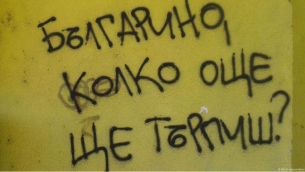 БЪЛГАРИНО,
КОЛКО ОЩЕ
ЩЕ ТЪРПИШ?